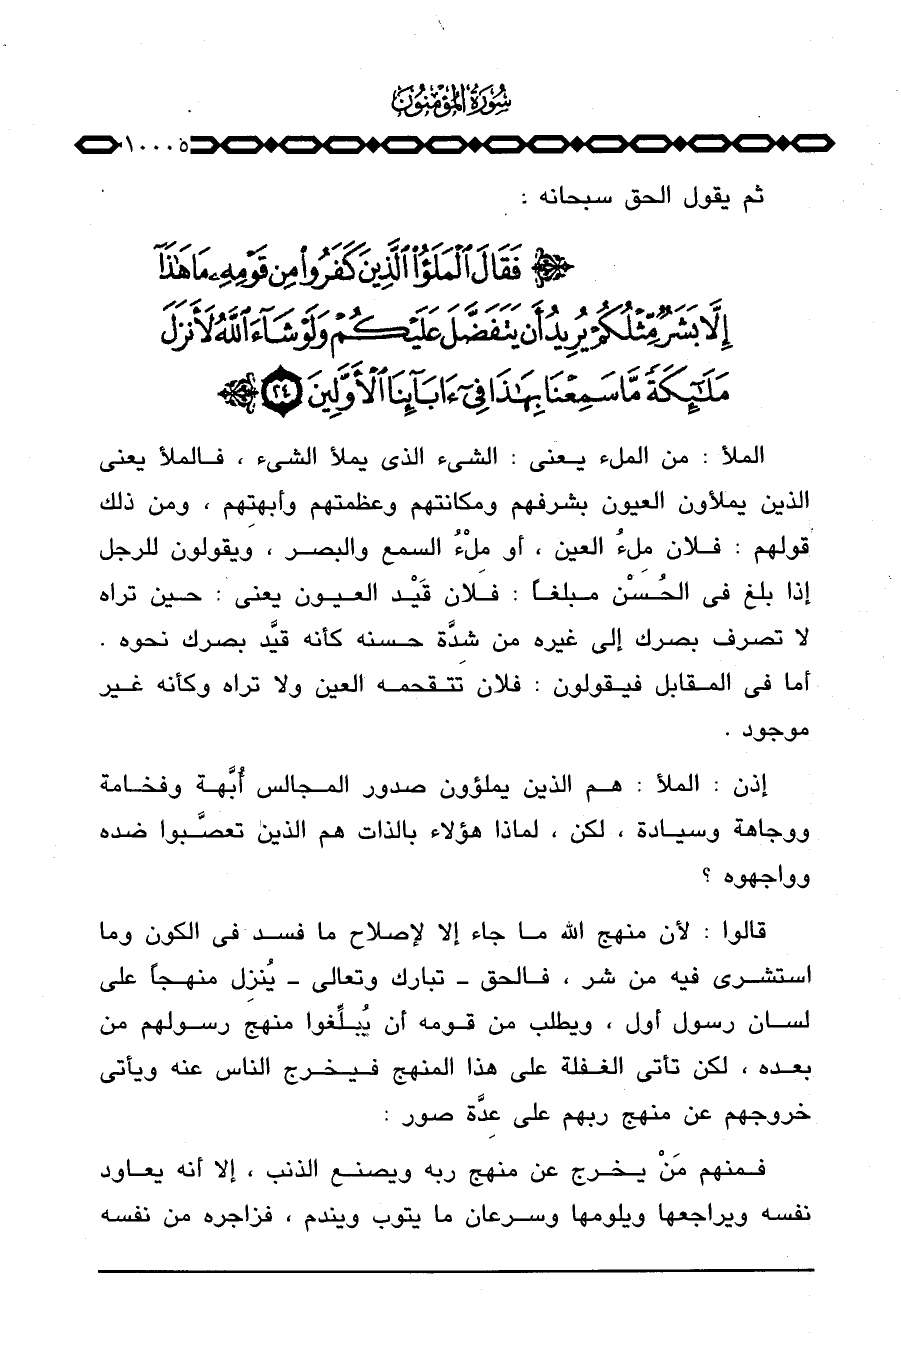 سُورَةُ المُؤْمِنُونَ
١٠٠٠٥
ثم يقول الحق سبحانه :
فَقَالَ ٱلْمَلَؤُا۟ ٱلَّذِينَ كَفَرُوا۟ مِن قَوْمِهِۦ مَا هَٰذَآ
إِلَّا بَشَرٌ مِّثْلُكُمْ يُرِيدُ أَن يَتَفَضَّلَ عَلَيْكُمْ وَلَوْ شَآءَ ٱللَّهُ لَأَنزَلَ
مَلَٰٓئِكَةً مَّا سَمِعْنَا بِهَٰذَا فِىٓ ءَابَآئِنَا ٱلْأَوَّلِينَ ٢٤
الملأ : من الملء يعنى : الشىء الذى يملأ الشىء ، فالملأ يعنى
الذين يملأون العيون بشرفهم ومكانتهم وعظمتهم وأبهتهم ، ومن ذلك
قولهم : فلان مِلءُ العين ، أو مِلْءُ السمع والبصر ، ويقولون للرجل
إذا بلغ فى الحُسْن مبلغاً : فلان قَيْد العيون يعنى : حين تراه
لا تصرف بصرك إلى غيره من شدَّة حسنه كأنه قيَّد بصرك نحوه .
أما فى المقابل فيقولون : فلان تتقحمه العين ولا تراه وكأنه غير
موجود .
إذن : الملأ : هم الذين يملؤون صدور المجالس أُبَّهة وفخامة
ووجاهة وسيادة ، لكن ، لماذا هؤلاء بالذات هم الذين تعصَّبوا ضده
وواجهوه ؟
قالوا : لأن منهج الله ما جاء إلا لإصلاح ما فسد فى الكون وما
استشرى فيه من شر ، فالحق - تبارك وتعالى - يُنزل منهجاً على
لسان رسول أول ، ويطلب من قومه أن يُبلِّغوا منهج رسولهم من
بعده ، لكن تأتى الغفلة على هذا المنهج فيخرج الناس عنه ويأتى
خروجهم عن منهج ربهم على عِدَّة صور :
فمنهم مَنْ يخرج عن منهج ربه ويصنع الذنب ، إلا أنه يعاود
نفسه ويراجعها ويلومها وسرعان ما يتوب ويندم ، فزاجره من نفسه